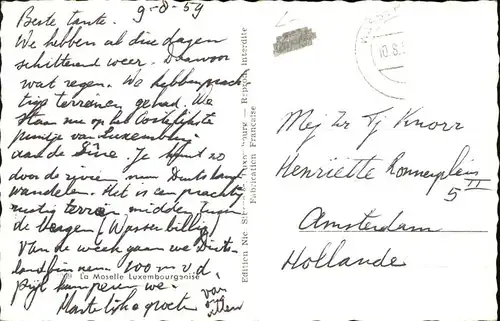 9-8-59
Beste tante.
We hebben al drie dagen
schitterend weer. Daarvoor
wat regen. We hebben prach
tige terreinen gehad. We
staan nu op het Oostelijkste
puntje van Luxemburg
aan de Sûre. Je kunt zo
door de rivier naar Duitsland
wandelen. Het is een prachtig
rustig terrein, midden tussen
de bergen (Wasserbillig)
Van de week gaan we Duits-
land binnen. 100 m v.d.
kamperen we.
Hartelijke groet van
ons
allen
La Moselle Luxembourgeoise
Edition Nic — Reprod. interdite
Fabrication Française
10.8.5
Mej Zr Tj Knorr
Henriette Ronnerplein
5 II
Amsterdam
Hollande